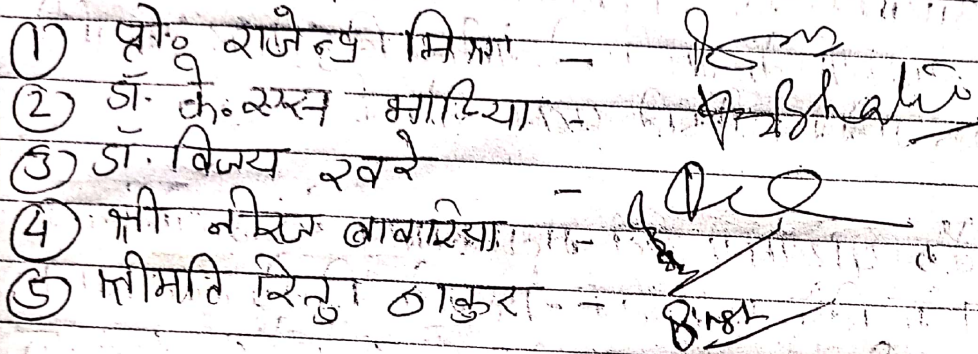 ① प्रो॰ राजेन्द्र मिश्रा -
② डॉ. के॰ एस भाटिया - Bhatia
③ डॉ. विजय खरे -
④ श्री नीरज बावरिया -
⑤ श्रीमति रितु ठाकुर -